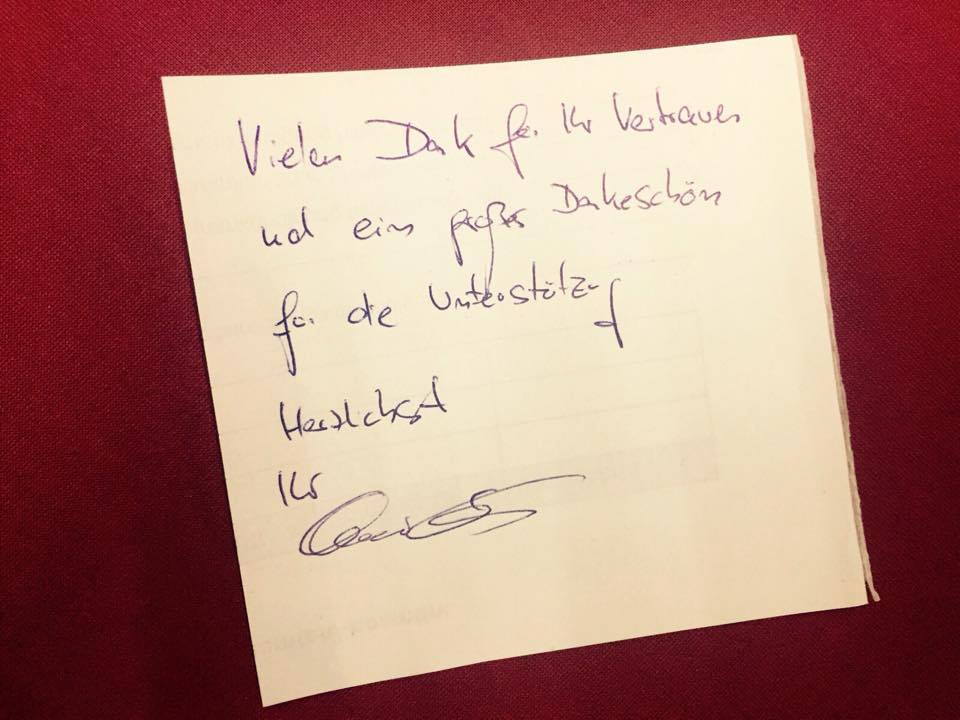 Vielen Dank für Ihr Vertrauen
und ein großes Dankeschön
für die Unterstützung
Herzlichst
Ihr